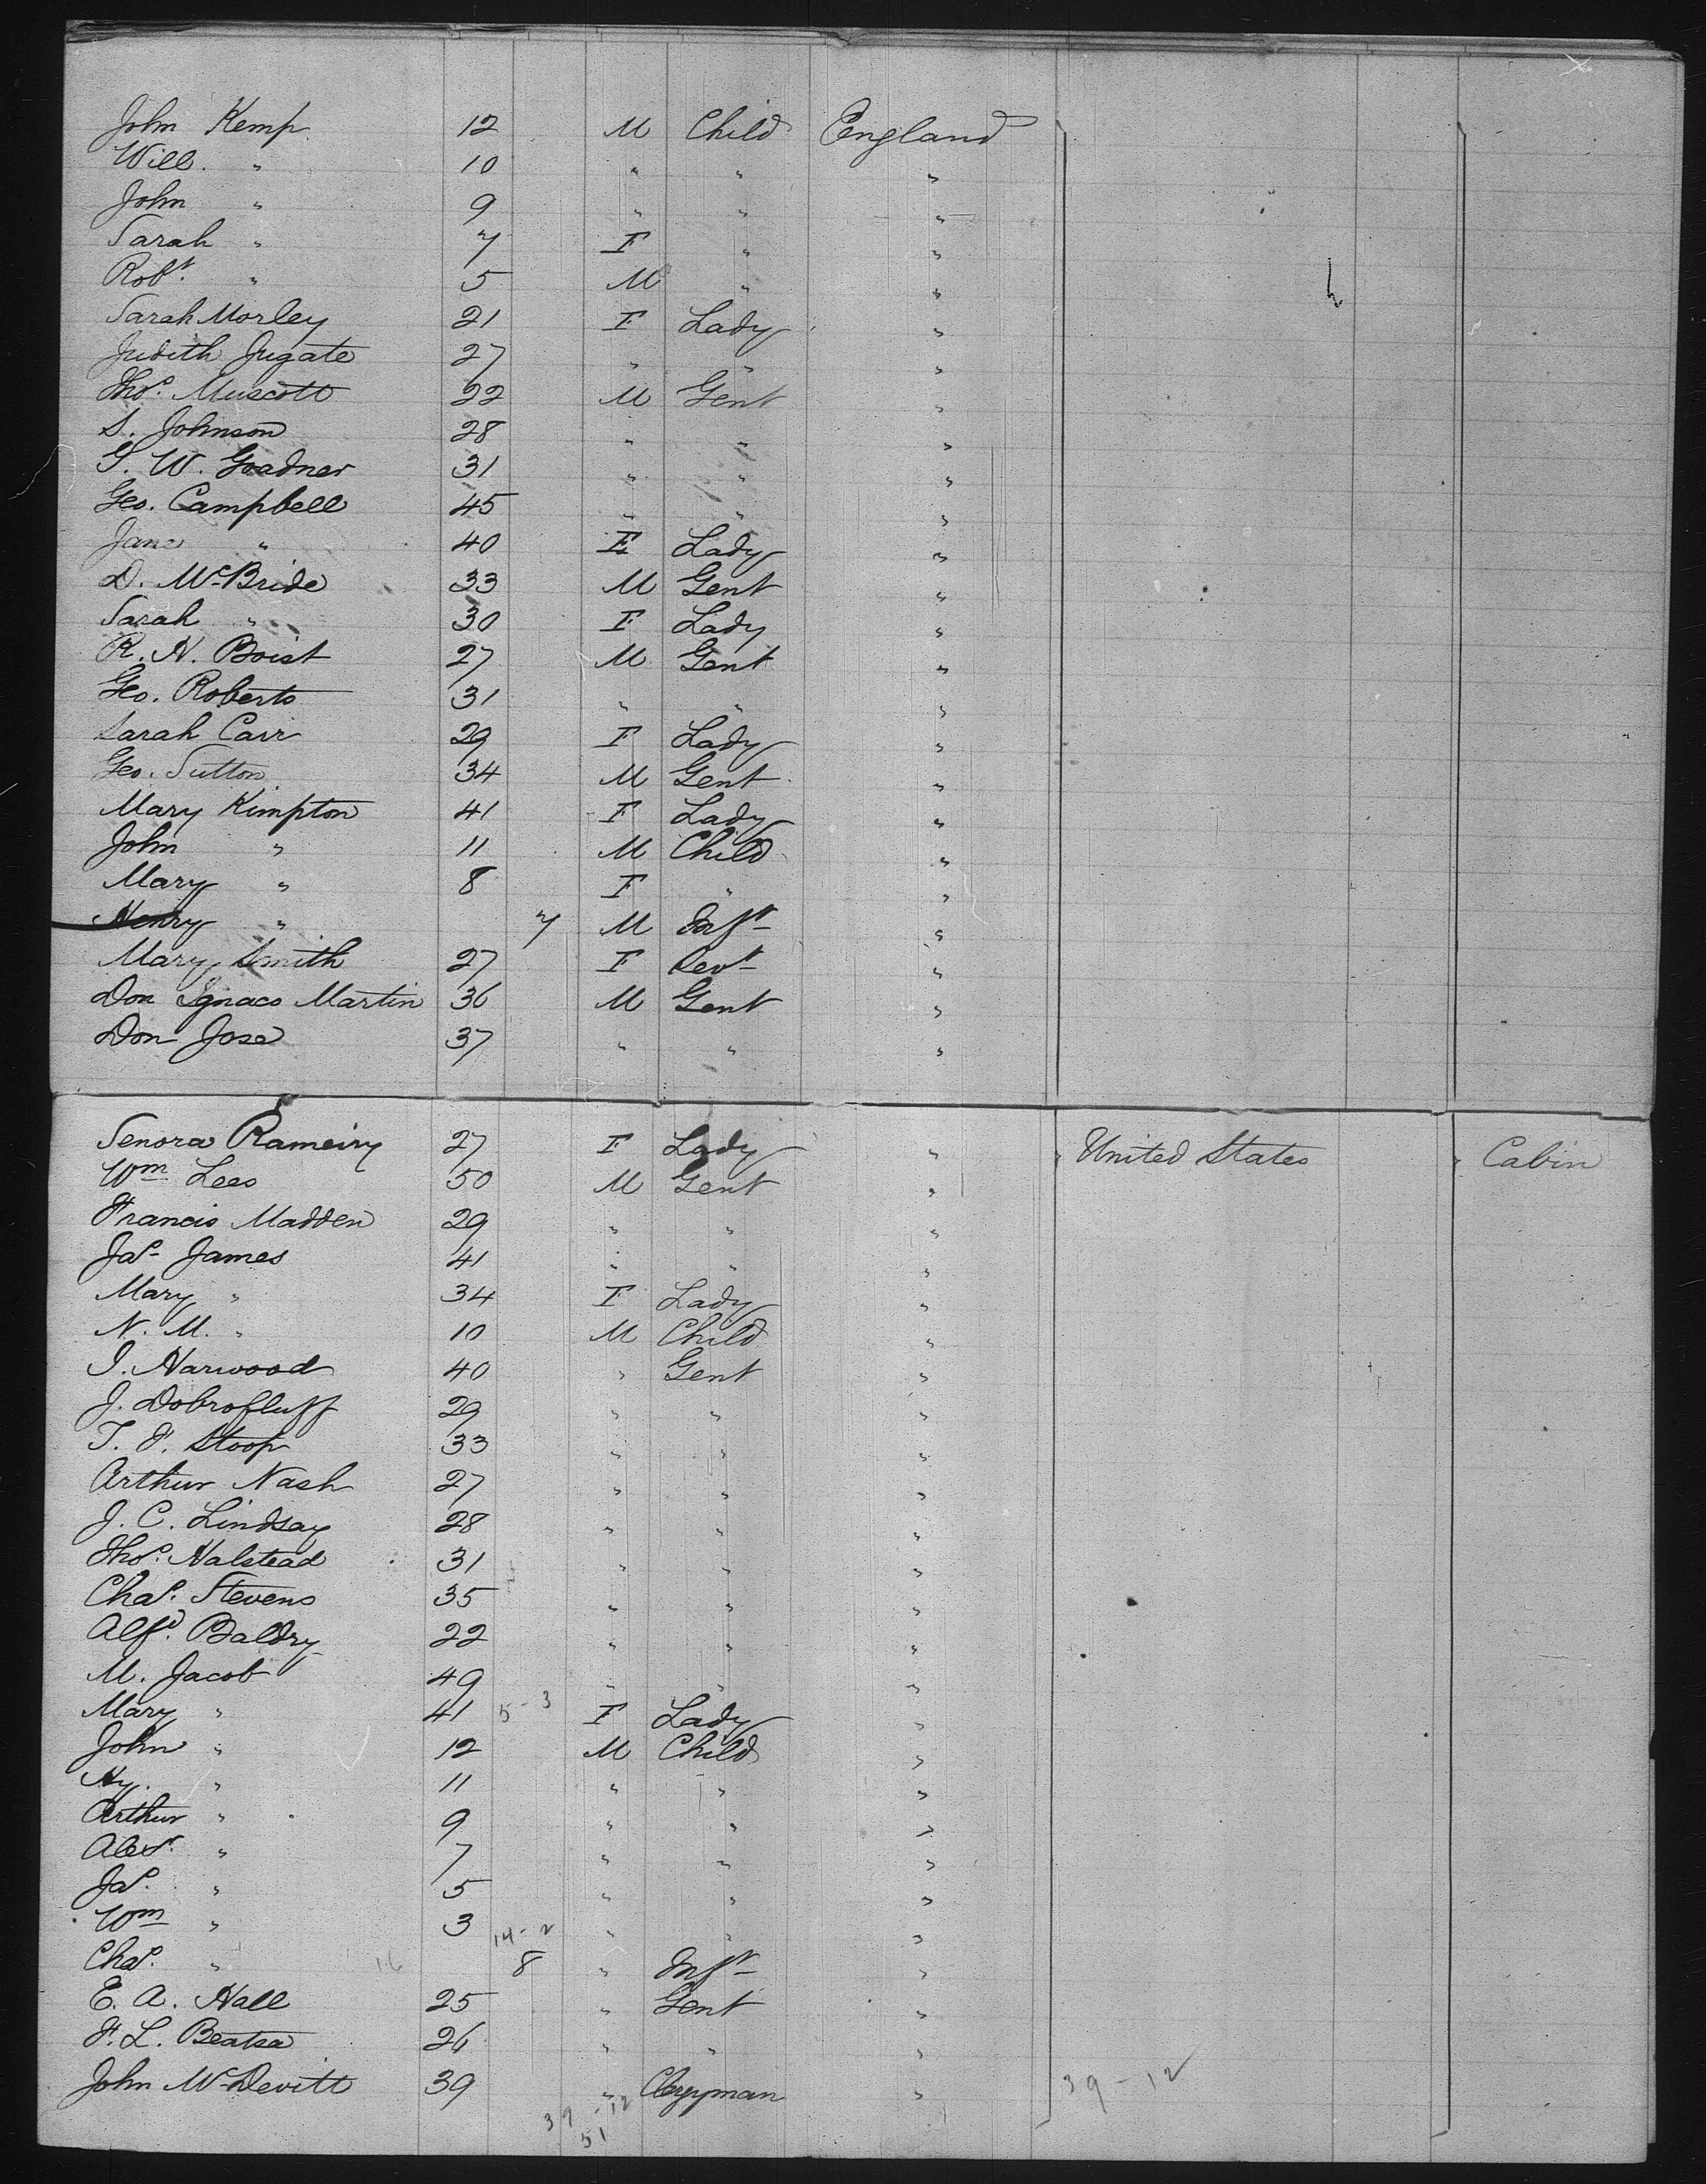 John Kemp 12 M Child England
Will. " 10 " " "
John " 9 " " "
Sarah " 7 F " "
Robt. " 5 M " "
Sarah Morley 21 F Lady "
Judith Jugate 27 " " "
Thos. Muscott 22 M Gent "
S. Johnson 28 " " "
G. W. Goadner 31 " " "
Geo. Campbell 45 " " "
Jane " 40 F Lady "
D. McBride 33 M Gent "
Sarah " 30 F Lady "
R. N. Boist 27 M Gent "
Geo. Roberts 31 " " "
Sarah Carr 29 F Lady "
Geo. Sutton 34 M Gent "
Mary Kimpton 41 F Lady "
John " 11 M Child "
Mary " 8 F " "
Henry " 7 M Inft "
Mary Smith 27 F Sevt "
Don Ignaco Martin 36 M Gent "
Don Jose 37 " " "
Senora Rameiry 27 F Lady " United States Cabin
Wm Lees 50 M Gent "
Francis Madden 29 " " "
Jas James 41 " " "
Mary " 34 F Lady "
N. M. " 10 M Child "
I. Harwood 40 " Gent "
J. Dobrofluff 29 " " "
T. F. Stoop 33 " " "
Arthur Nash 27 " " "
J. C. Lindsay 28 " " "
Thos. Halstead 31 " " "
Chas. Stevens 35 " " "
Alfd. Baldry 22 " " "
M. Jacob 49 " " "
Mary " 41 5-3 F Lady "
John " 12 M Child "
Hy. " 11 " " "
Arthur " 9 " " "
Alexr. " 7 " " "
Jas. " 5 " " "
Wm " 3 " " "
14-2
Chas. " 16 8 " Inft "
E. A. Hall 25 " Gent "
F. L. Beatsa 26 " " "
John McDevitt 39 " Clergyman " 39-12
39-12
51